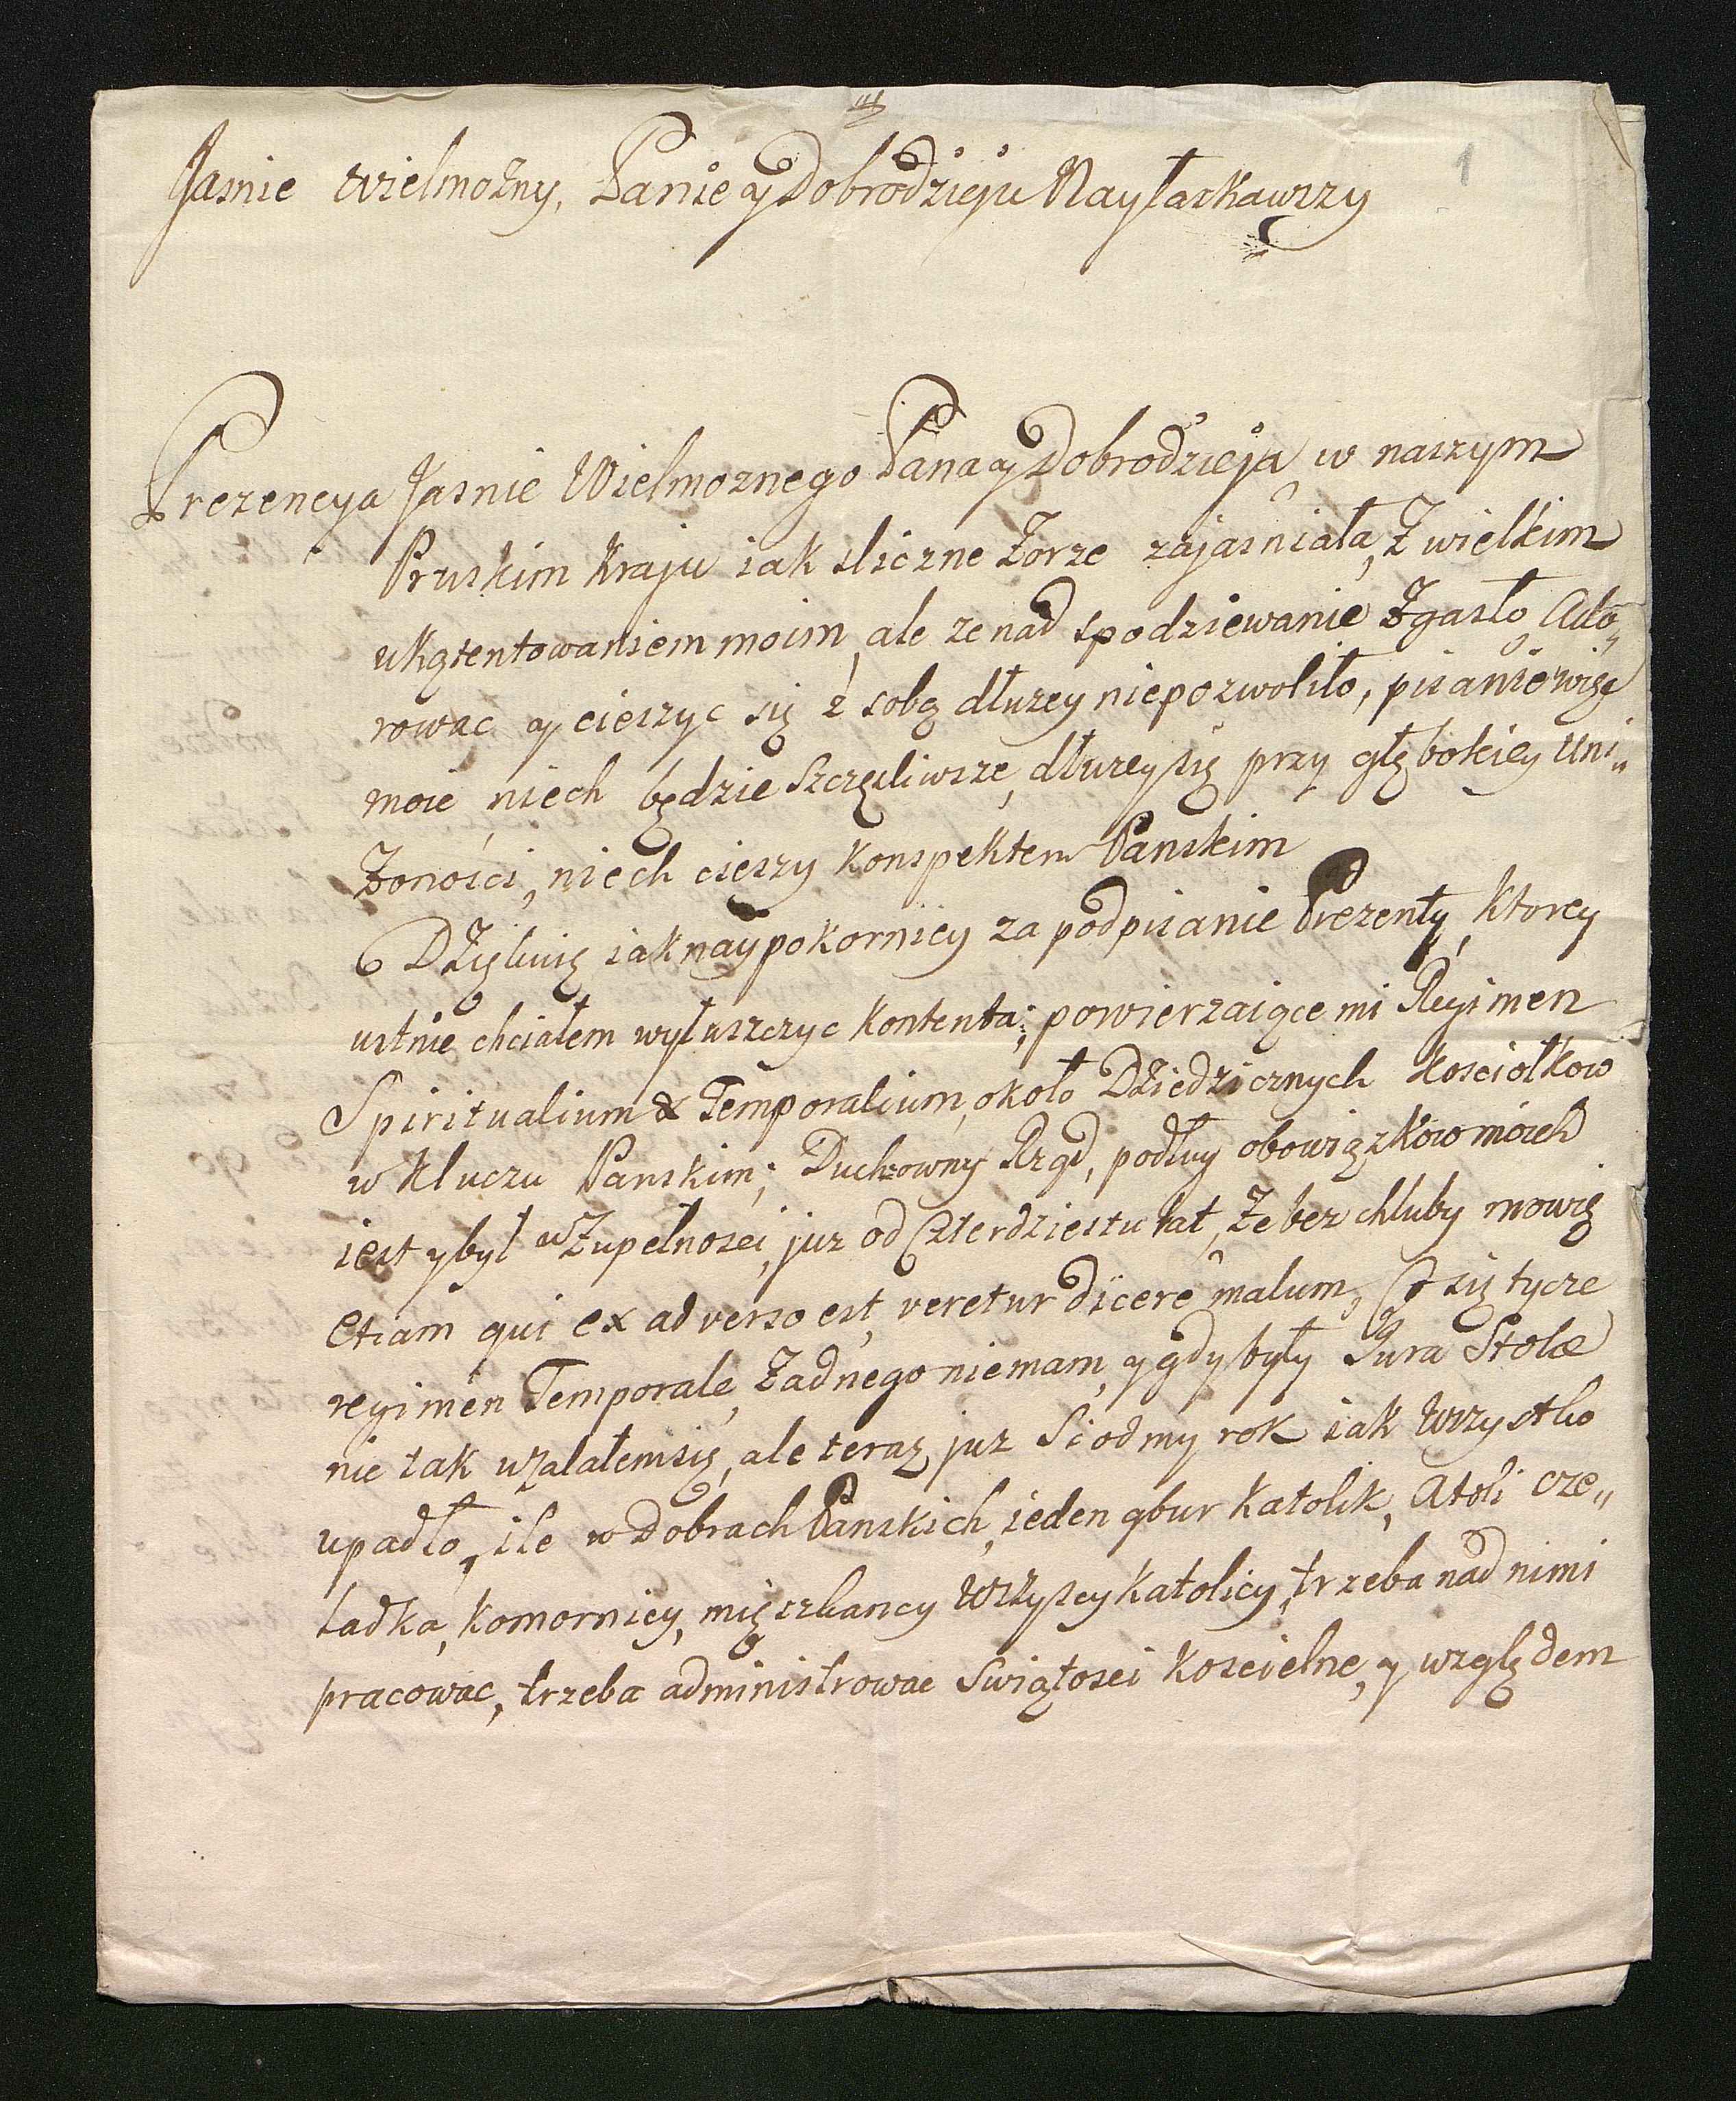 1
Jasnie Wielmożny, Panie y Dobrodzieju Nayłaskawszy
Prezencya Jasnie Wielmoznego Pana y Dobrodzieja w naszym
Pruskim Kraju iak sliczne Zorze zajasniała, Z wielkim
ukątentowaniem moim, ale ze nad spodziewanie Zgasło, Ado„
rowac y cieszyc się z sobą dłuzey niepozwoliło, pisanie więc
moie niech będzie Szczęsliwsze, dłuzey się przy głębokiey Uni„
Zonośći, niech cieszy Konspektem Panskim
Dziękuię iak naypokorniey za podpisanie Prezenty, Ktorey
ustnie chciałem wyłuszczyc Kontenta; powierzaiące mi Regimen
Spiritualium & Temporalium, około Dziedzicznych Kosciołkow
w Kluczu Panskim; Duchowny Rząd, podług obowiązkow moich
iest y był w Zupełnosci, juz od Czterdziestu lat, Ze bez chluby mowię
etiam qui ex adverso est, veretur dicere malum, Co się tycze
regimen Temporale, Zadnego niemam, y gdy były Jura Stolæ
nie tak uzalałem się, ale teraz juz Siodmy rok iak Wszystko
upadło, ile w Dobrach Panskich, ieden gbur Katolik, Atoli cze„
ladka, Komornicy, mięszkancy Wszyscy Katolicy, trzeba nad nimi
pracowac, trzeba administrowac Swiątosci Koscielne, y względem